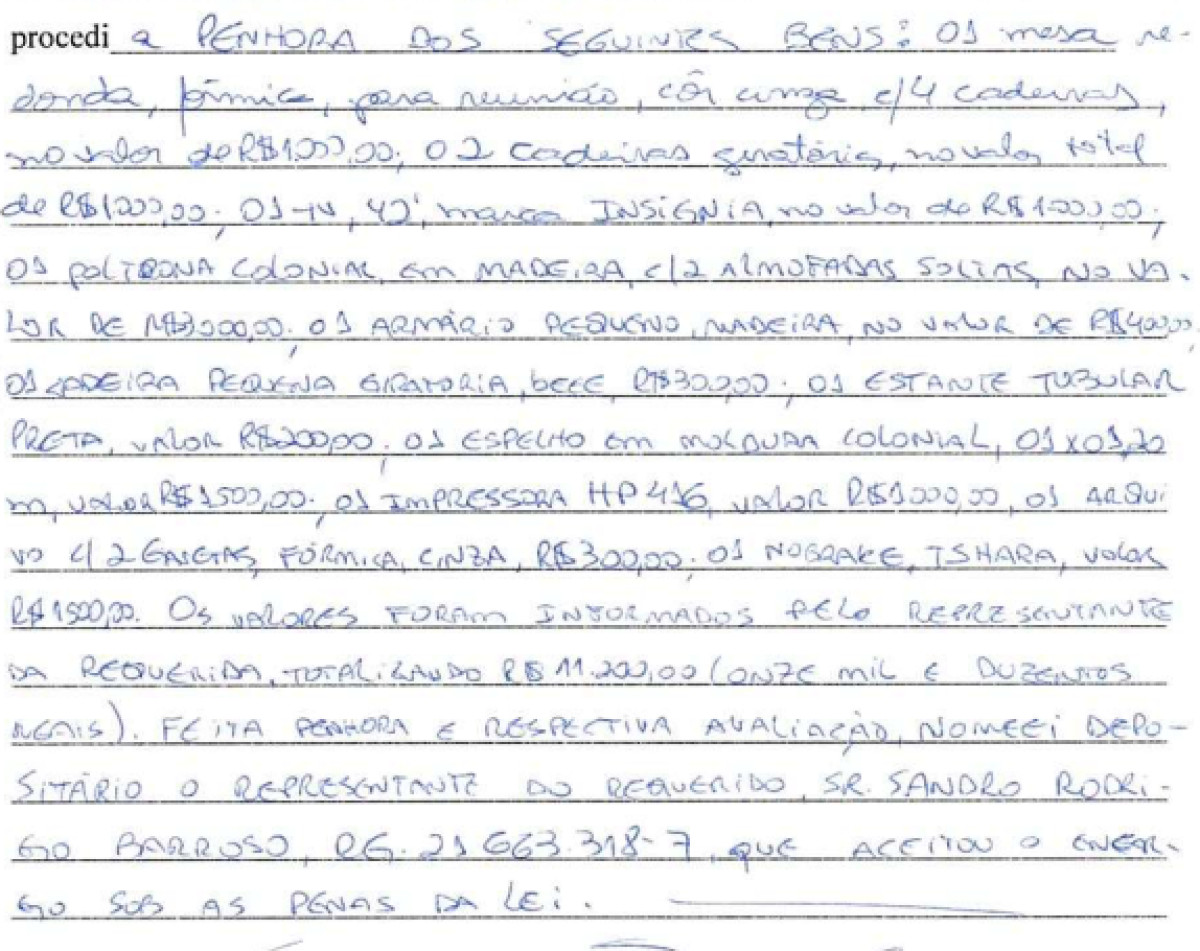 procedi a PENHORA DOS SEGUINTES BENS: 01 mesa re-
donda, fórmica, para reunião, côr cinza c/4 cadeiras,
no valor de R$1000,00; 02 cadeiras giratória, no valor total
de R$1200,00; 01 TV, 42', marca INSIGNIA, no valor de R$1000,00;
01 POLTRONA COLONIAL, em MADEIRA, c/2 ALMOFADAS SOLTAS, NO VA-
LOR DE R$3000,00; 01 ARMÁRIO PEQUENO, MADEIRA, NO VALOR DE R$400,00;
01 CADEIRA PEQUENA GIRATORIA, bege, R$300,00; 01 ESTANTE TUBULAR
PRETA, VALOR R$200,00; 01 ESPELHO em MOLDURA COLONIAL, 01x01,20
m, VALOR R$1500,00; 01 IMPRESSORA HP 416, VALOR R$1000,00, 01 ARQUI
VO c/2 GAVETAS, FÓRMICA, CINZA, R$300,00; 01 NOBRAKE, TSHARA, valor
R$1500,00. Os VALORES FORAM INFORMADOS PELO REPRESENTANTE
DA REQUERIDA, TOTALIZANDO R$ 11.200,00 (ONZE mil E DUZENTOS
REAIS). FEITA PENHORA E RESPECTIVA AVALIAÇÃO, NOMEEI DEPO-
SITÁRIO O REPRESENTANTE DO REQUERIDO, SR. SANDRO RODRI-
GO BARROSO, RG. 21 663.318-7, QUE ACEITOU O ENCAR-
GO SOB AS PENAS DA LEI.